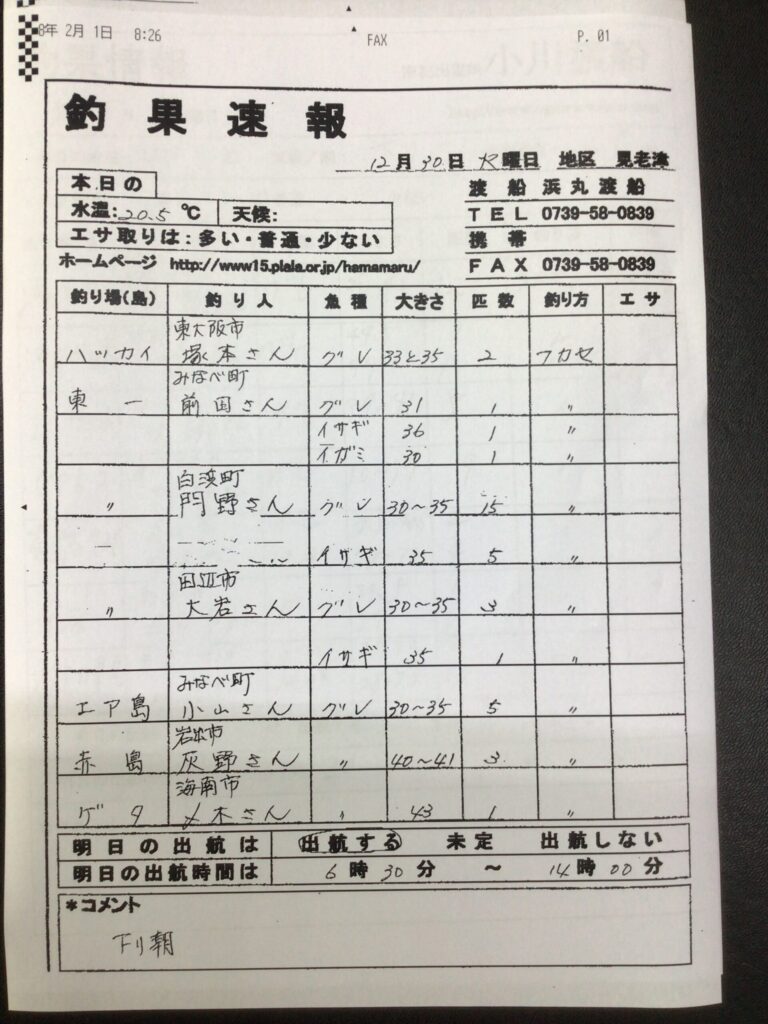 8年 2月 1日 8:26 FAX P. 01
釣果速報
12月30日 火曜日 地区 見老津
本日の
水温:20.5℃ 天候:
エサ取りは:多い・普通・少ない
ホームページ http://www15.plala.or.jp/hamamaru/
渡船 浜丸渡船
TEL 0739-58-0839
携帯
FAX 0739-58-0839
釣り場(島) 釣り人 魚種 大きさ 匹数 釣り方 エサ
東大阪市
ハッカイ 塚本さん グレ 33と35 2 フカセ
みなべ町
東一 前田さん グレ 31 1 〃
イサギ 36 1 〃
イガミ 30 1 〃
白浜町
〃 門野さん グレ 30～35 15 〃
イサギ 35 5 〃
田辺市
〃 大岩さん グレ 30～35 3 〃
イサギ 35 1 〃
みなべ町
エア島 小山さん グレ 30～35 5 〃
岩出市
赤島 灰野さん 〃 40～41 3 〃
海南市
ゲタ 木さん 〃 43 1 〃
明日の出航は 出航する 未定 出航しない
明日の出航時間は 6時30分 ～ 14時00分
*コメント
下り潮